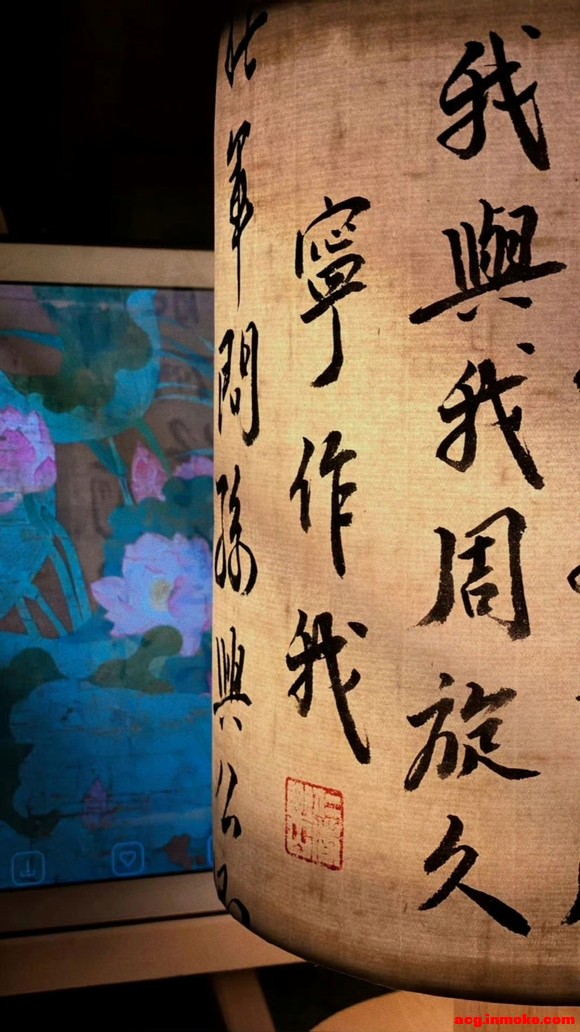 我與我周旋久
寧作我
軍問孫興公
acg.inmoke.com